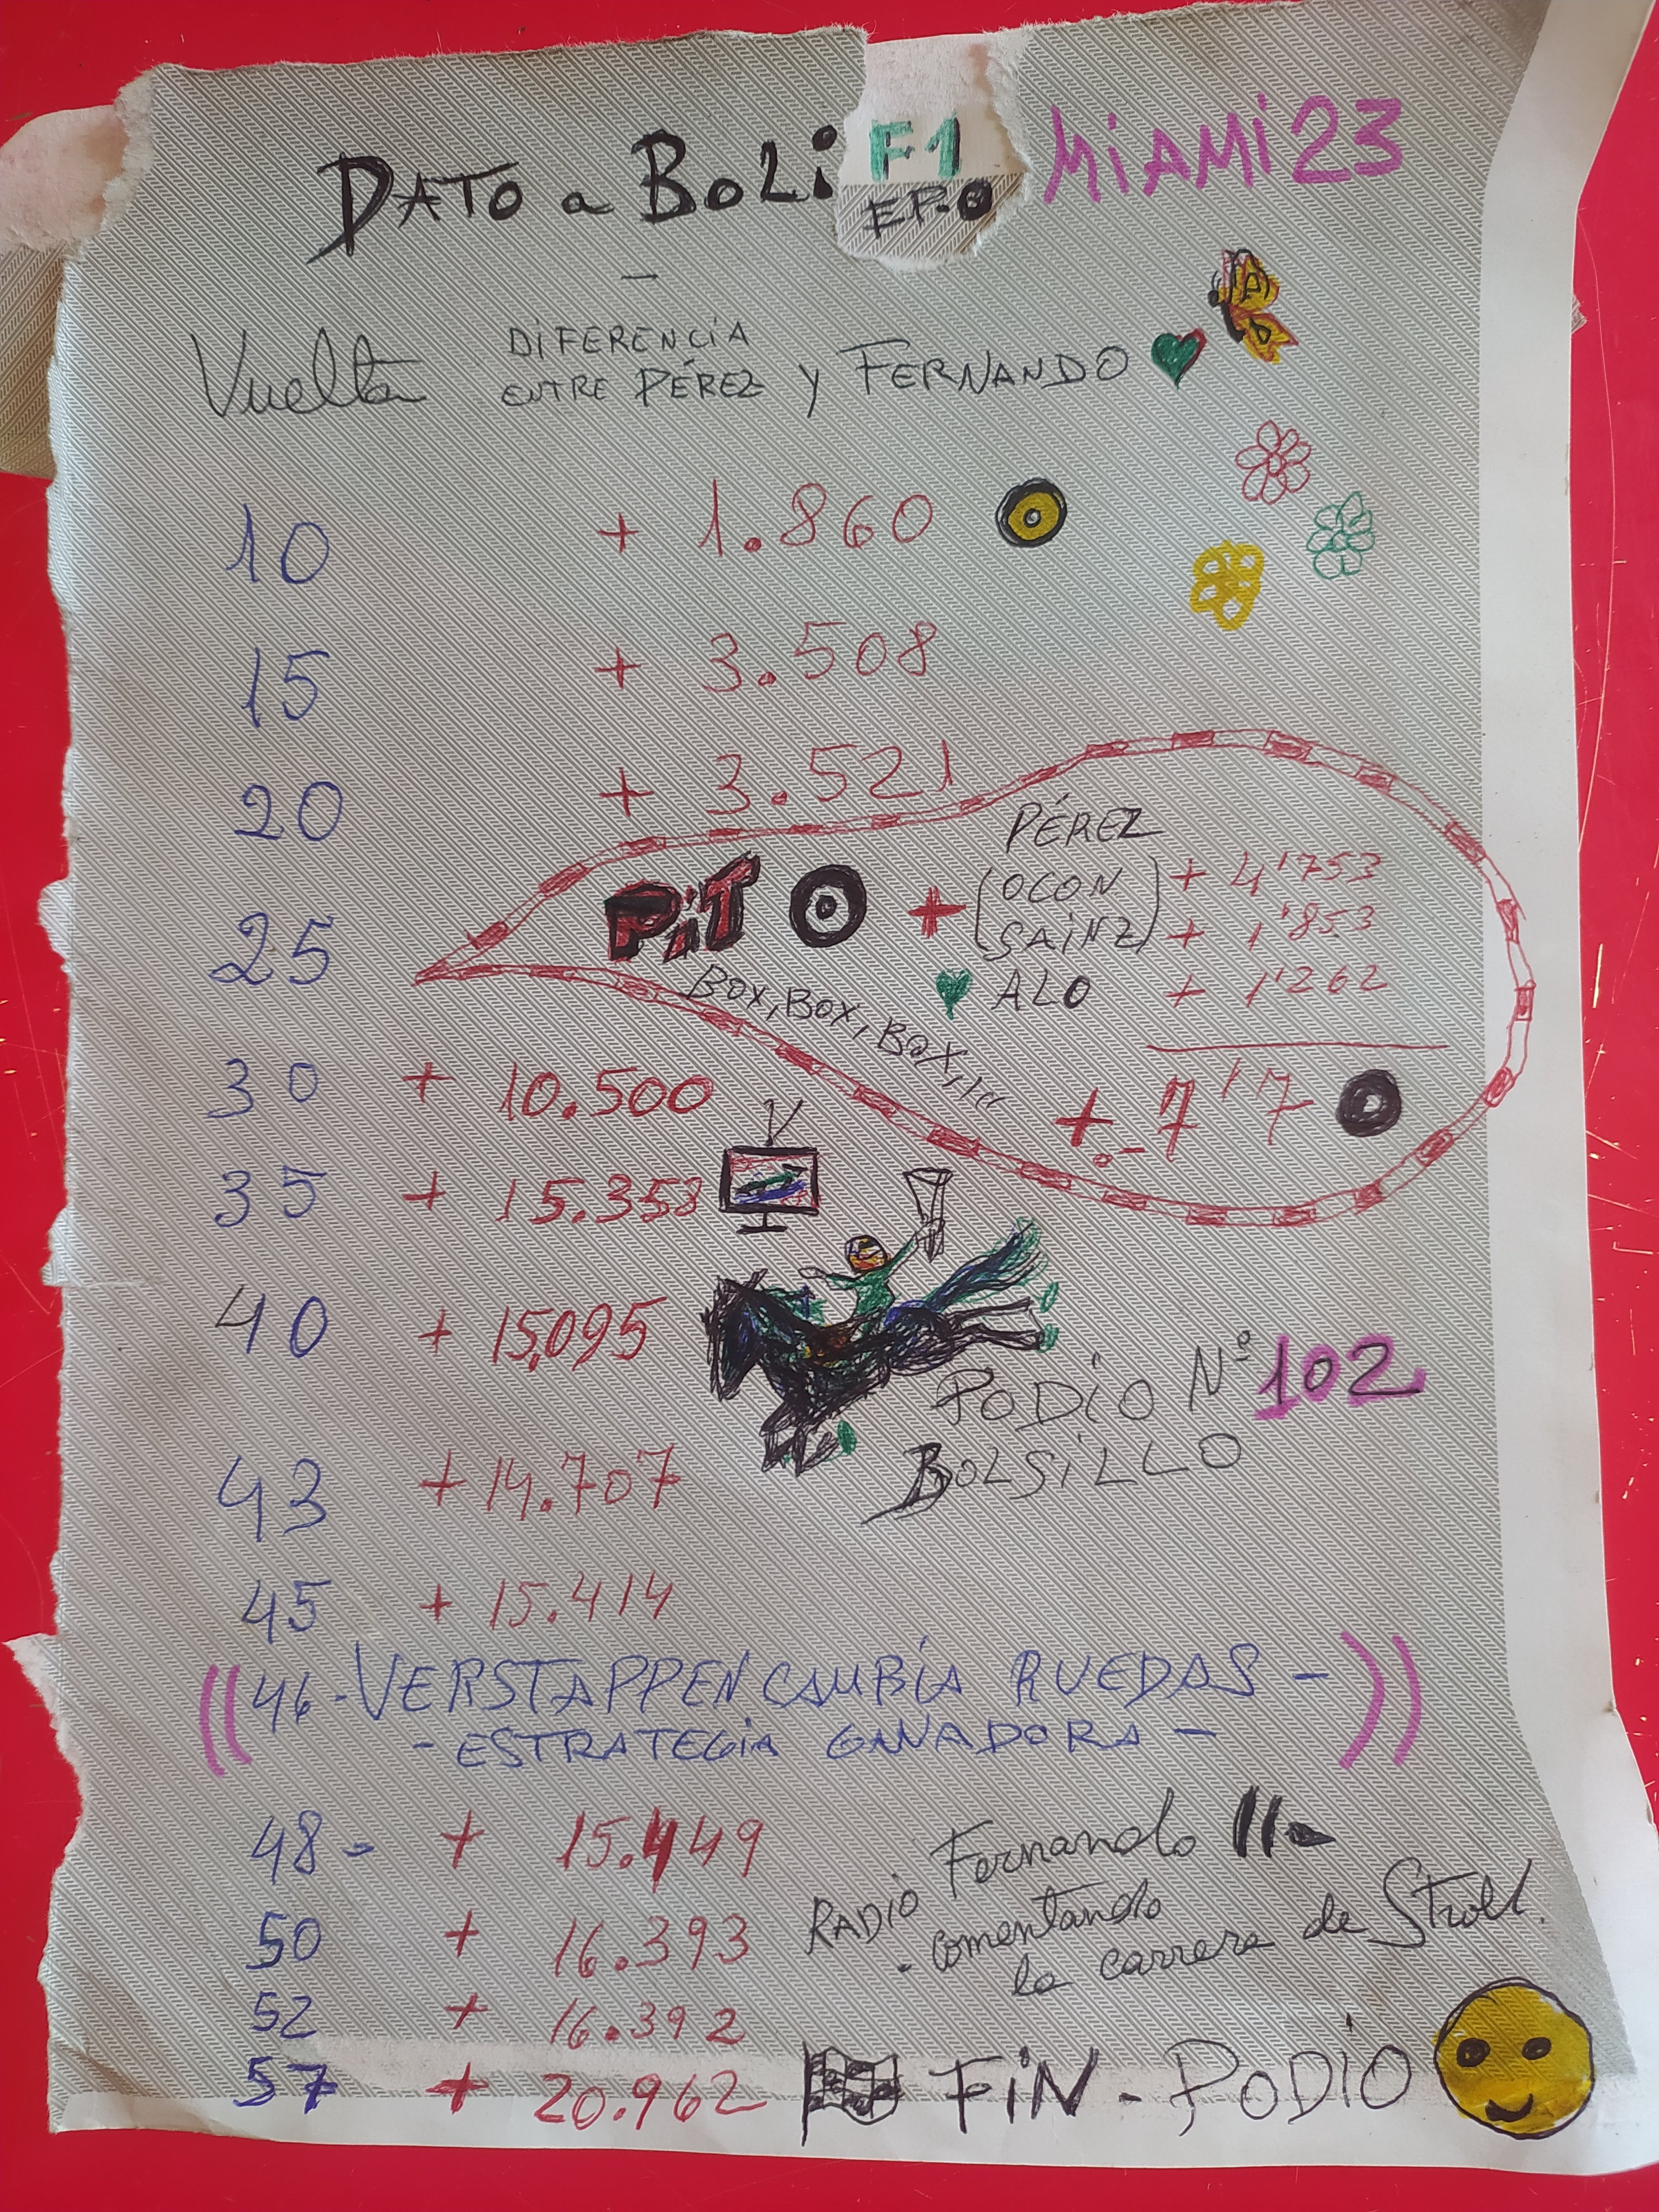 DATO a BOLi F1 MiAMi 23
EP.0
Vuelta DiFERENCiA
ENTRE PÉREZ y FERNANDO
10 + 1.860
15 + 3.508
20 + 3.521
PÉREZ
25 PiT + (OCON) + 4'753
(SAiNZ) + 1'853
ALO + 1'262
Box, Box, Box,
+.- 7'7
30 + 10.500
35 + 15.358
40 + 15.095
PODiO Nº 102
BOLSiLLO
43 + 14.707
45 + 15.414
((46 - VERSTAPPEN CAMBiA RUEDAS -))
- ESTRATEGiA GANADORA -
48 - + 15.449
RADIO Fernando
. comentando
la carrera de Stroll.
50 + 16.393
52 + 16.392
57 + 20.962 FiN - PODiO